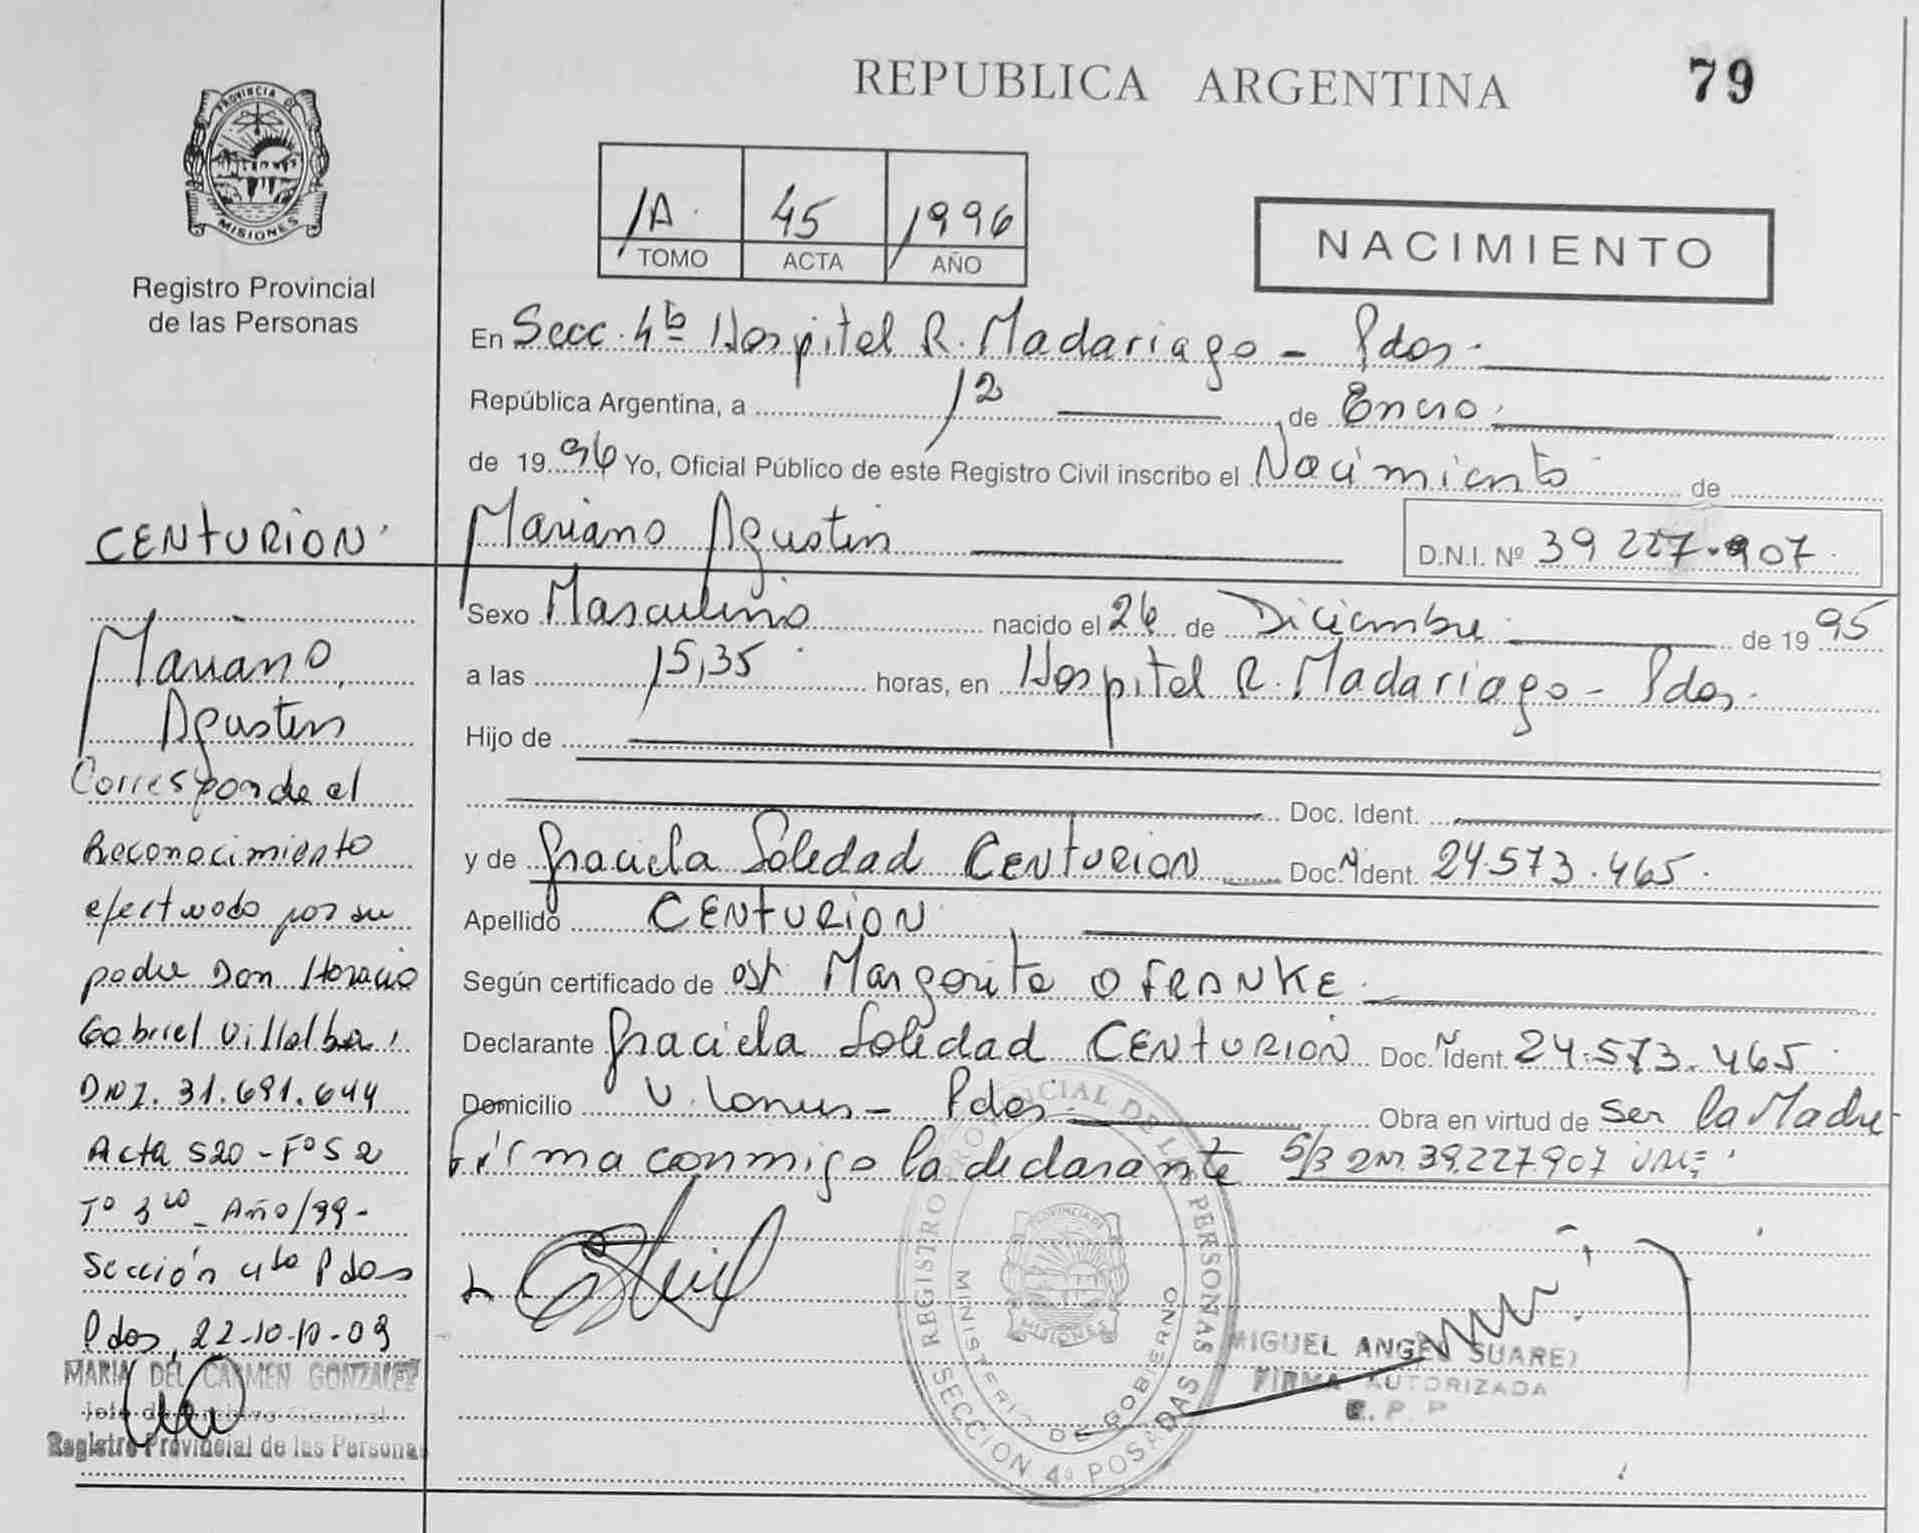 REPUBLICA ARGENTINA
79
PROVINCIA DE
MISIONES
Registro Provincial
de las Personas
1A. 45 1996
TOMO ACTA AÑO
NACIMIENTO
En Secc. 4ta Hospital R. Madariaga - Pdas.
República Argentina, a 12 de Enero.
de 1996 Yo, Oficial Público de este Registro Civil inscribo el Nacimiento de
Mariano Agustin
D.N.I. Nº 39 227.907.
Sexo Masculino nacido el 26 de Diciembre de 1995
a las 15,35 horas, en Hospital R. Madariaga - Pdas.
Hijo de
Doc. Ident.
y de Graciela Soledad CENTURION Doc. Ident. 24.573.465.
Apellido CENTURION
Según certificado de obst. Margarita O FRANKE.
Declarante Graciela Soledad CENTURION Doc. Ident. 24.573.465.
Domicilio V. Lanus - Pdas. Obra en virtud de ser la Madre
Firma conmigo la declarante 39.227.907
CENTURION
Mariano
Agustin
Corresponde al
Reconocimiento
efectuado por su
padre Don Horacio
Gabriel Villalba,
DNI. 31.691.644
Acta 520 - Fº 52
Tº 3ro - Año/99-
Sección 4ta Pdas
Pdas, 22-10-09
MARIA DEL CARMEN GONZALEZ
Jefe de Archivo General
Registro Provincial de las Personas
REGISTRO PROVINCIAL DE LAS PERSONAS
SECCION 4ª POSADAS
MINISTERIO DE GOBIERNO
PROVINCIA DE
MISIONES
MIGUEL ANGEL SUAREZ
FIRMA AUTORIZADA
R. P. P.